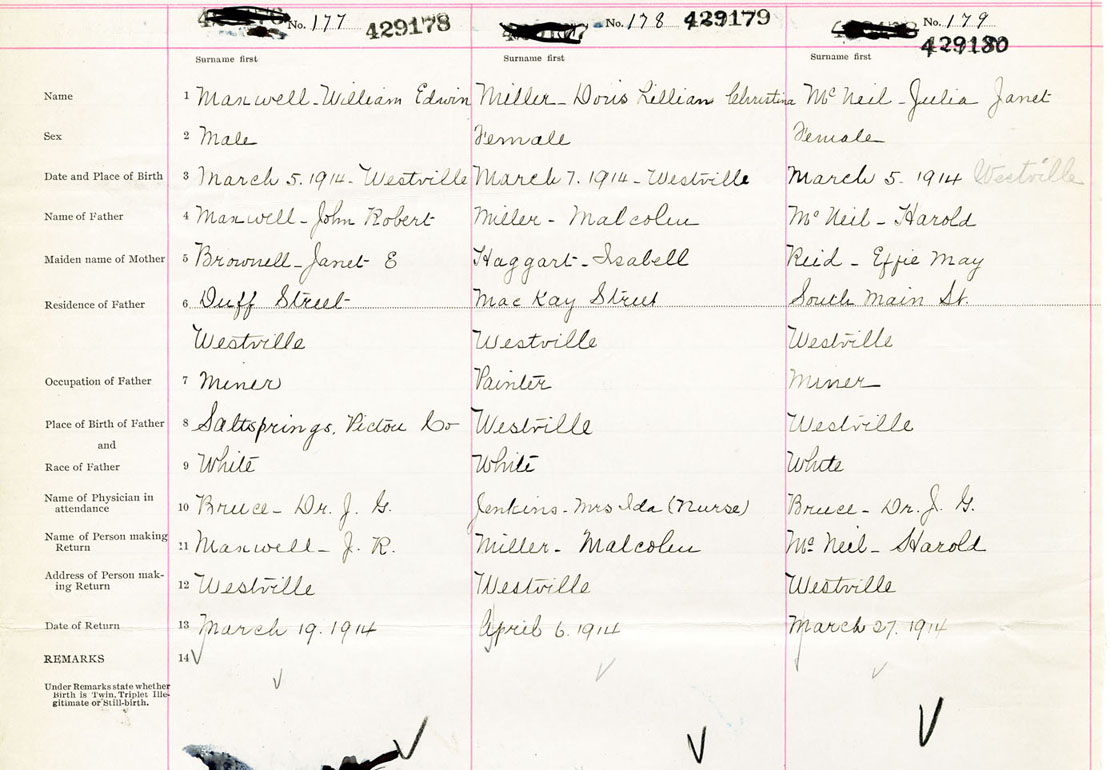 No. 177 429178 No. 178 429179 No. 179 429180
Surname first Surname first Surname first
Name 1 Maxwell - William Edwin Miller - Doris Lillian Christina McNeil - Julia Janet
Sex 2 Male Female Female
Date and Place of Birth 3 March 5. 1914 - Westville March 7. 1914 - Westville March 5. 1914 Westville
Name of Father 4 Maxwell - John Robert Miller - Malcolm McNeil - Harold
Maiden name of Mother 5 Brownell - Janet E Haggart - Isabell Reid - Effie May
Residence of Father 6 Duff Street MacKay Street South Main St.
Westville Westville Westville
Occupation of Father 7 Miner Painter Miner
Place of Birth of Father 8 Saltsprings, Pictou Co Westville Westville
and
Race of Father 9 White White White
Name of Physician in
attendance 10 Bruce - Dr. J. G. Jenkins - Mrs Ida (Nurse) Bruce - Dr. J. G.
Name of Person making
Return 11 Maxwell - J. R. Miller - Malcolm McNeil - Harold
Address of Person mak-
ing Return 12 Westville Westville Westville
Date of Return 13 March 19. 1914 April 6. 1914 March 27. 1914
REMARKS 14
Under Remarks state whether
Birth is Twin, Triplet Ille-
gitimate or Still-birth.